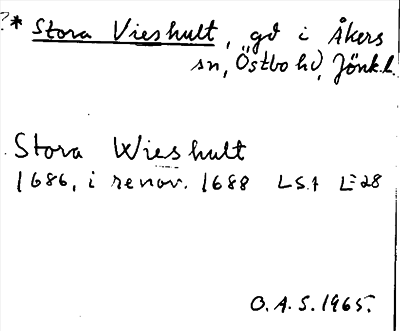 ?* Stora Vieshult, gd i Åkers
sn, Östbo hd, Jönk.l.
Stora Wieshult
1686, i renov. 1688 LS.1 E28
O.A.S. 1965.